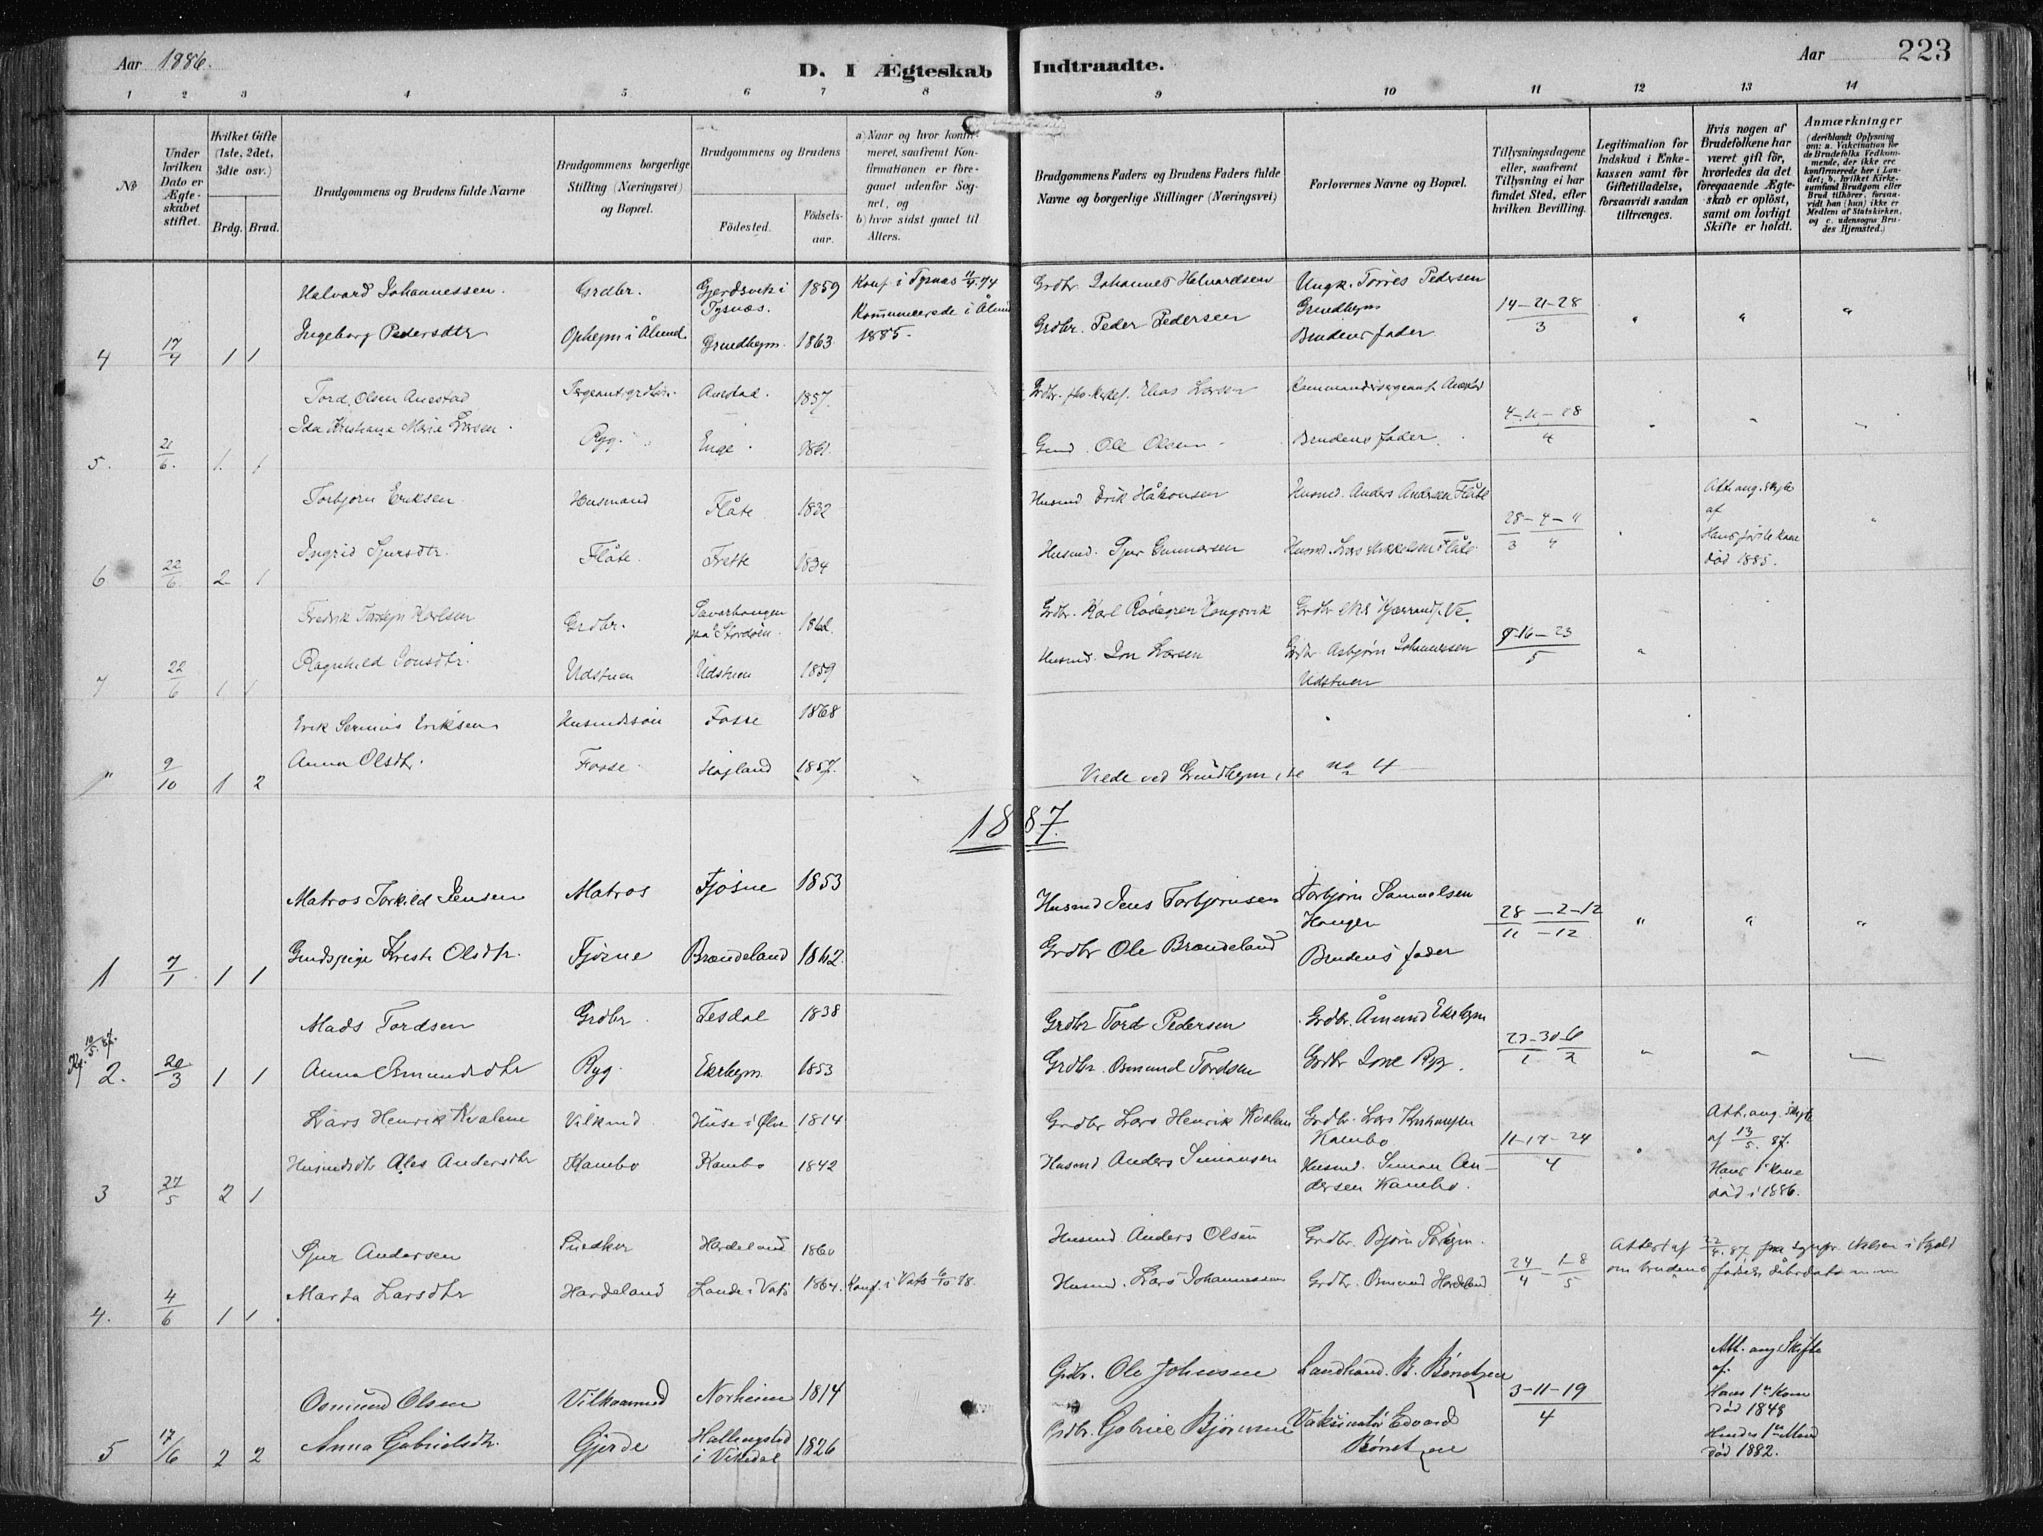 Aar 1886.
D. I Ægteskab Indtraadte.
Aar 223
1 2 3 4 5 6 7 8 9 10 11 12 13 14
No
Under hvilken Dato er Ægteskabet stiftet.
Hvilket Gifte (1ste, 2det, 3die osv.)
Brdg. Brud.
Brudgommens og Brudens fulde Navne
Brudgommens borgerlige Stilling (Næringsvei) og Bopæl.
Brudgommens og Brudens
Födested.
Födselsaar.
a) Naar og hvor konfirmeret, saafremt Konfirmationen er foregaaet udenfor Sognet, og
b) hvor sidst gaaet til Alters.
Brudgommens Faders og Brudens Faders fulde Navne og borgerlige Stillinger (Næringsvei)
Forlovernes Navne og Bopæl.
Tillysningsdagene eller, saafremt Tillysning ei har fundet Sted, efter hvilken Bevilling.
Legitimation for Indskud i Enkekassen samt for Giftetilladelse, forsaavidt saadan tiltrænges.
Hvis nogen af Brudefolkene har været gift för, hvorledes da det foregaaende Ægteskab er oplöst, samt om lovligt Skifte er holdt.
Anmærkninger
(deriblandt Oplysning om: a. Vaccination for de Brudefolks Vedkommende, der ikke ere konfirmerede her i Landet; b. hvilket Kirkesamfund Brudgom eller Brud tilhörer, forsaavidt han (hun) ikke er Medlem af Statskirken, og c. udensogns Brudes Hjemsted.)
Halvard Johannessen. Grdbr. Gjerdsvik i Tysnæs. 1859 Konf. i Tysnæs 11/4 74 Grdbr. Johannes Halvardsen Ungk. Torres Pedersen Grindhejm 14-21-28 / 3
4 17/4 1 1 Ingeborg Pedersdtr Ophejm i Ålund Grindhejm 1863 Kommunicerede i Ålund 1885. Grdbr. Peder Pedersen Brudens fader
Tord Olsen Anestad Sergeant, grdbr. Anestad. 1857. Elias Larsen
5. 21/6. 1. 1 Ida Kristiane Marie Larsen. Ryg. Enge. 1861. Ole Olsen Brudens fader. 4-11-18 / 4
Torbjørn Eriksen Husmand Flåte 1832 Husmd. Erik Håkonsen Husmd. Anders Andersen Flåte 28-4-11 / 3 4 Att. ang. Skifte af
6 22/6. 2 1 Ingrid Sjursdtr. Flåte. Frette 1834 Husmd. Sjur Gunnarsen Husmd. Lars Mikkelsen Flåte Hans første kone død 1885.
Fredrik Karlsen Grdbr. på Stordøen. 1862. Grdbr. Karl
7 22/6 1 1 Ragnhild Jonsdtr. Udstuen Udstuen 1859 Husmd. Jon Larsen Grdbr. Asbjørn Johannesen Udstuen 9-16-23 / 5
Erik Serinius Eriksen Husmdssøn Fosse 1868
" 9/10 1 2 Anna Olsdtr. Fosse. Højland 1857. Viede ved Grindhejm, se no 4
1887.
Matros Torkild Jensen Matros Fjøsne 1853 Husmd Jens Torbjørnsen Torbjørn Samuelsen Haugen 28-2-12 / 11-12
1 7/1 1 1 Gmdspige Kirsti Olsdtr. Fjøsne Brændeland 1862. Grdbr Ole Brændeland Brudens fader
Mads Tordsen Grdbr Tesdal 1838 Grdbr Tord Pedersen Grdbr. Åmund Ekrhejm 23-30-6 / 1 2
2. 20/3 1 1 Anna Osmundsdtr Ryg. Ekrhejm 1853 Grdbr. Osmund Tordsen Grdbr Jone Ryg.
Lars Henrik Kvalene Vilkmd Huse i Ølve 1814 Grdbr Lars Henrik Kvalen Grdbr. Lars Kambo 11-17-24 / 4 Att. ang. Skifte af 13/5. 87.
3 27/5 2 1 Husmdsdtr Ales Andersdtr Kambo Kambo 1842 Husmd Anders Simonsen Husmd. Simon Andersen Kambo. Hans 1e kone død i 1886.
Sjur Andersen Snedker Hardeland 1860 Husmd Anders Olsen Grdbr. Bjørn 24/4-1-8/5 Attest af 22/4. 87 fra
4. 4/6 1 1. Marta Larsdtr Hardeland Lande i Vats 1864. Konf. i Vats 6/10 78. Husmd. Lars Johannessen Grdbr. Osmund Hardeland om brudens
Osmund Olsen Vilkaarmd Norheim 1814 Grdbr. Ole Johnsen Landhand. B. Børretzen 3-11-19 / 4 Att. ang Skifte af. Hans 1e Kone død 1848
5 17/6 2 2 Anna Gabrielsdtr. Gjerde Hallingstad i Vikedal 1826 Grdbr. Gabriel Bjørnsen Vaksinatør Edvard Børretzen Hendes 1e Mand død 1882.